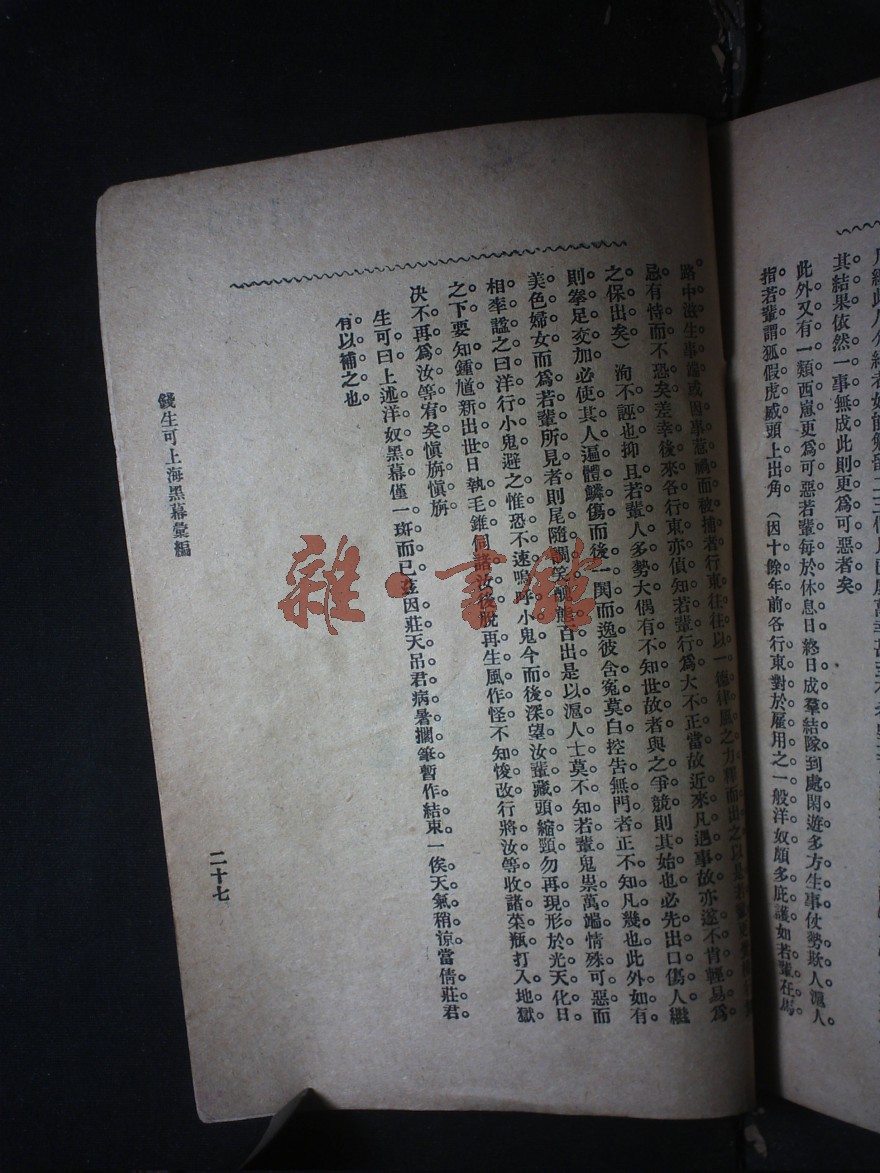 其結果依然一事無成此則更爲可惡者矣
此外又有一類西崽更爲可惡若輩每於休息日終日成羣結隊到處閑遊多方生事仗勢欺人滬人。
指若輩謂狐假虎威頭上出角(因十餘年前各行東對於雇用之一般洋奴頗多庇護如若輩在馬
路中滋生事端或因事惹禍而被捕者行東往往以一德律風之力釋而出之以是若輩
忌有恃而不恐矣差幸後來各行東亦偵知若輩行爲大不正當故近來凡遇事故亦遂不肯輕易爲
之保出矣)洵不誣也抑且若輩人多勢大偶有不知世故者與之爭競則其始也必先出口傷人繼
則拳足交加必使其人遍體鱗傷而後一鬨而逸彼含冤莫白控告無門者正不知凡幾也此外如有
美色婦女而爲若輩所見者則尾隨調笑醜態百出是以滬人士莫不知若輩鬼祟萬端情殊可惡而
相率謚之曰洋行小鬼避之惟恐不速嗚呼小鬼今而後深望汝輩藏頭縮頸勿再現形於光天化日
之下要知鍾馗新出世日執毛錐伺諸汝後脫再生風作怪不知悛改行將汝等收諸菜瓶打入地獄
決不再爲汝等宥矣愼旃愼旃
生可曰上述洋奴黑幕僅一斑而已茲因莊天吊君病暑擱筆暫作結束一俟天氣稍涼當倩莊君
有以補之也
錢生可上海黑幕彙編
二十七
雜·書館